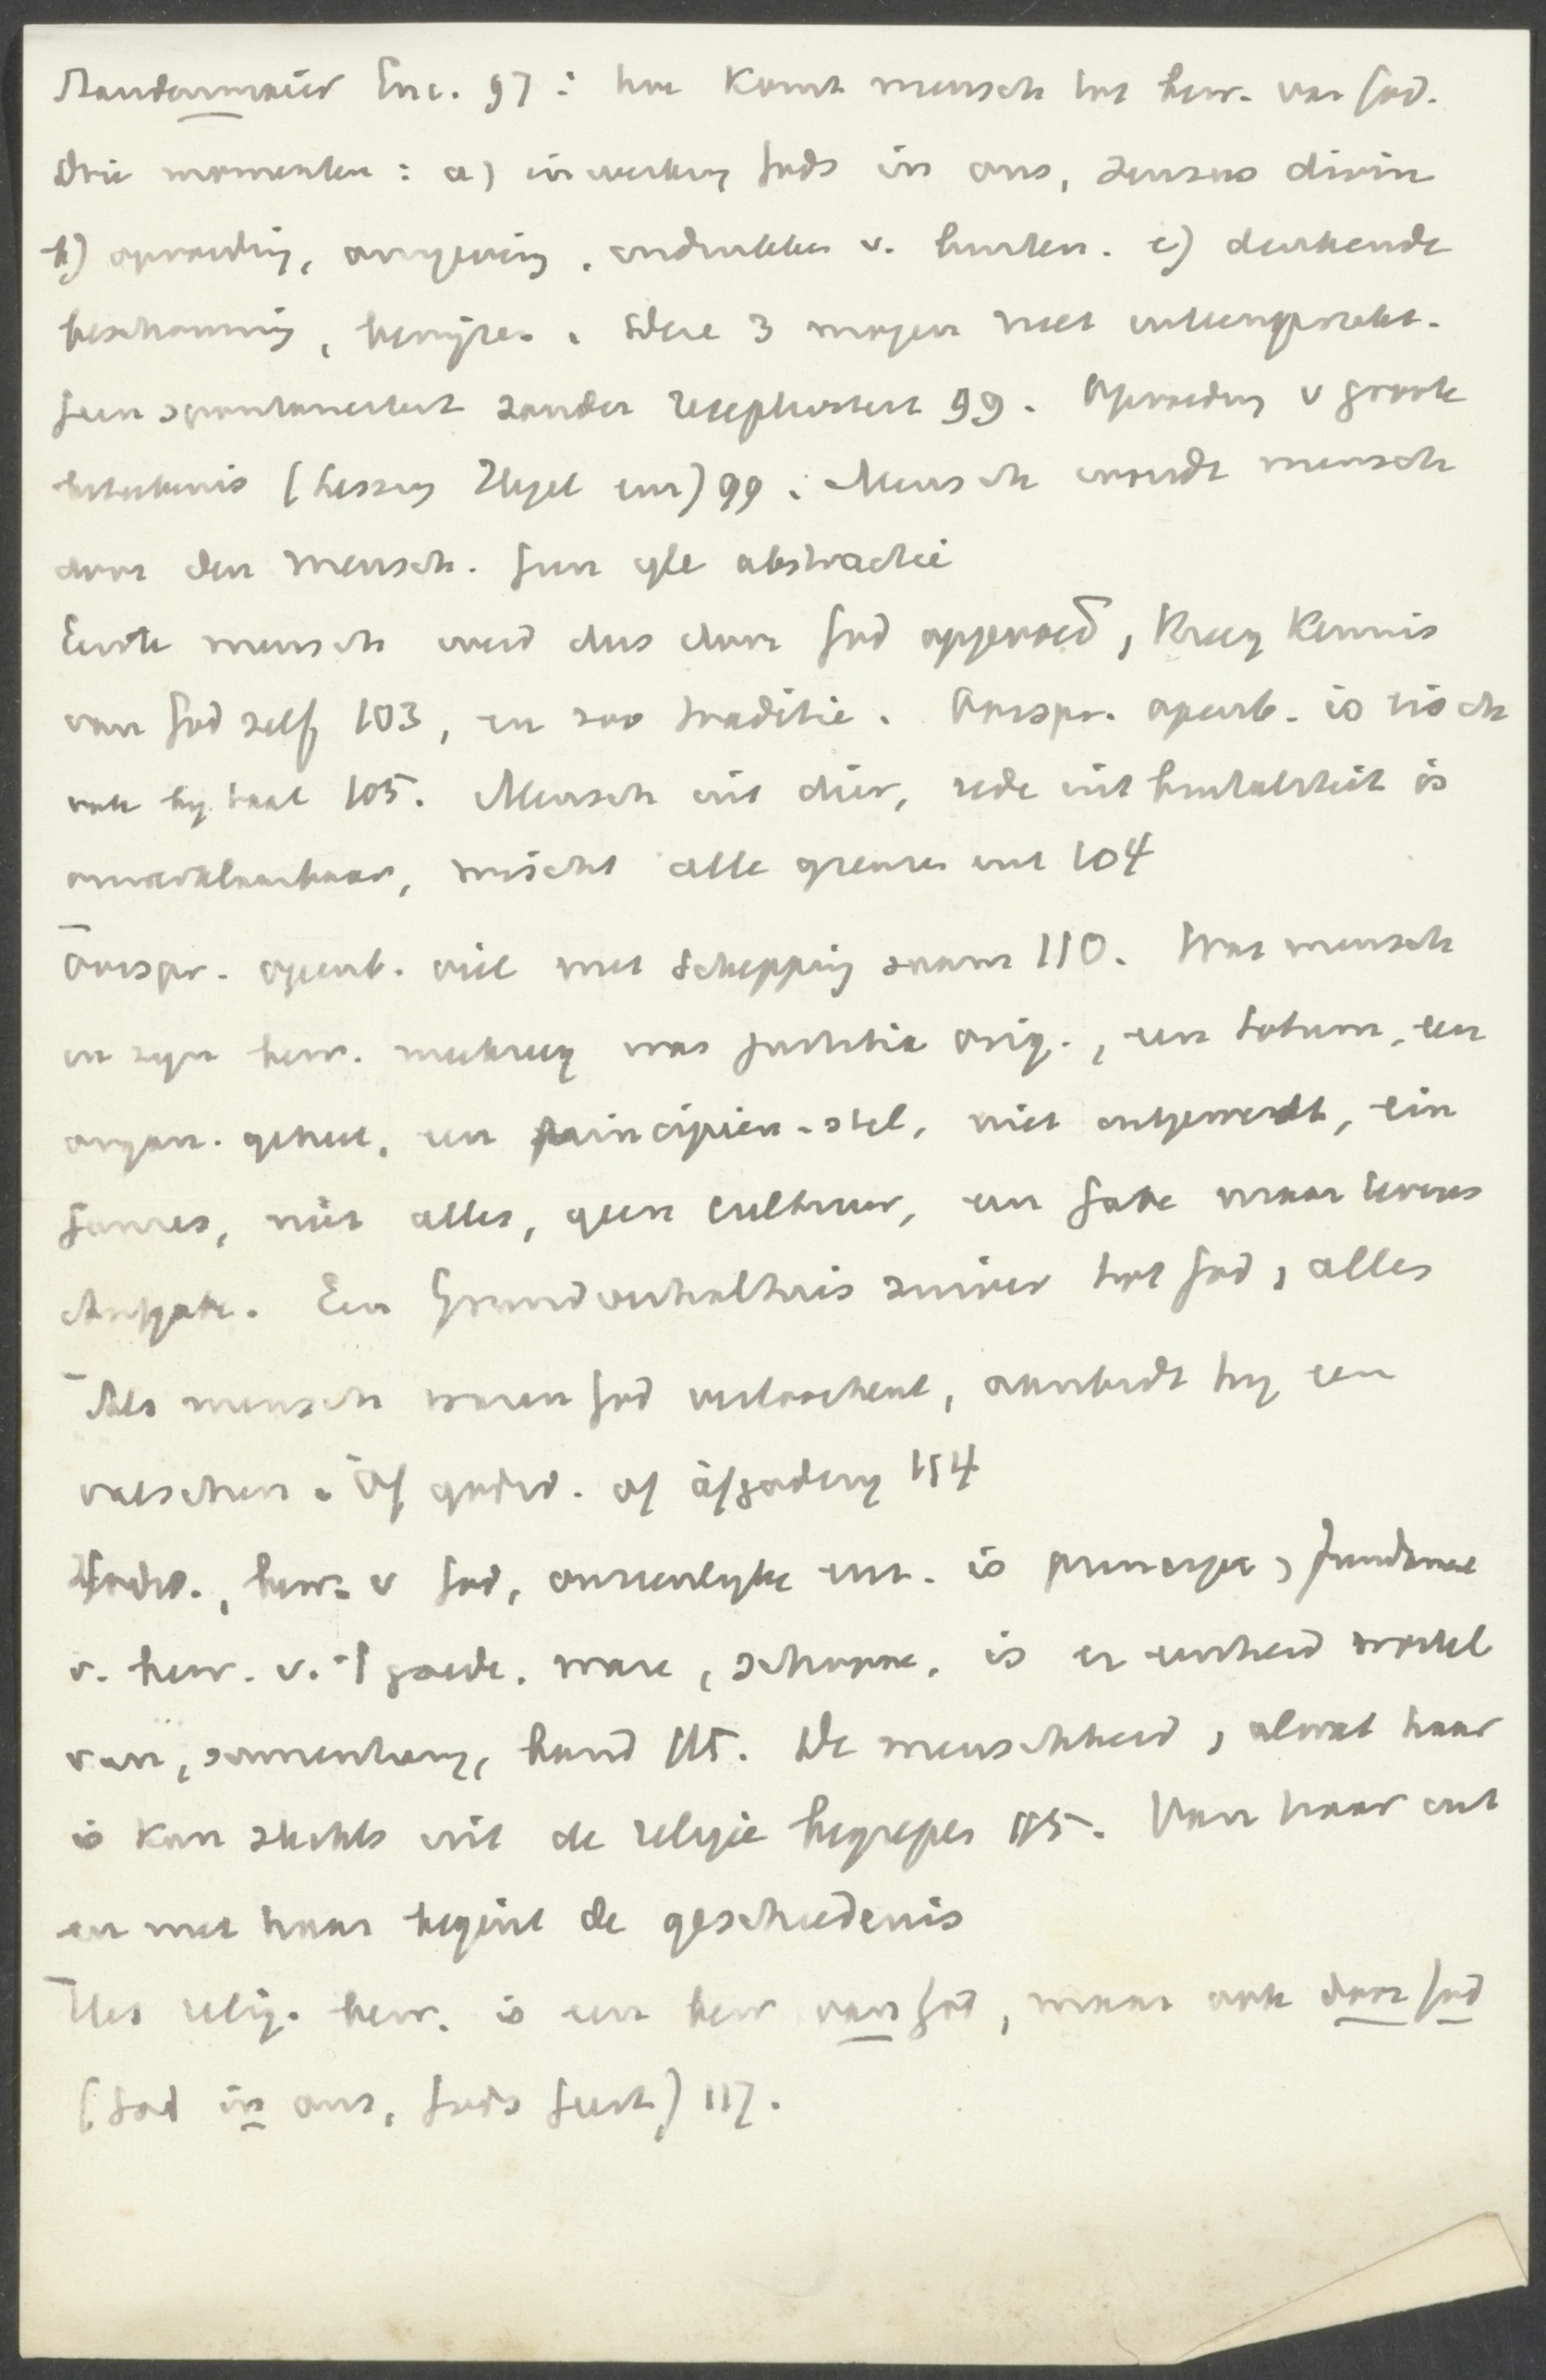 Staudenmaier Enc. 97: hoe komt mensch tot bew. van God.
Drie momenten: a) inwerking Gods in ons, sensus divin
b) opvoeding, omgeving, indrukken v. buiten. c) denkende
beschouwing, bewijzen. Deze 3 mogen niet
Geen spontaneiteit zonder receptiviteit 99. Opvoeding v groote
beteekenis (Lessing Hegel enz) 99. Mensch wordt mensch
door den mensch. Geen abstractie
Eerste mensch werd dus door God opgevoed, kreeg kennis
van God zelf 103, en zoo traditie. Oorspr. openb. is
ook bij taal 105. Mensch uit dier, rede uit brutaliteit is
onverklaarbaar, wischt alle grenzen uit 104
Oorspr. openb. viel met schepping saam 110. Wat mensch
in zijn bew. meekreeg was justitia orig., een totum, een
organ. geheel, een principien-stel, niet ontwikkeld, ein
Ganzes, niet alles, geen cultuur, een Gabe maar tevens
Aufgabe. Een Grundverhältnis zuiver tot God, alles
Als mensch waren God verloochent, aanbidt hij een
valschen. Of godsd. of afgoderij 114
Godsd., bew. v God, is principe, fundament
v. bew. v. 't goede, ware, schoone, is er eenheid wortel
van, samenhang, band 115. De menschheid, alwat haar
is kan slechts uit de religie begrepen 115. Van haar uit
en met haar begint de geschiedenis
Het relig. bew. is een bew van God, maar ook door God
(God in ons, Gods Geest) 117.